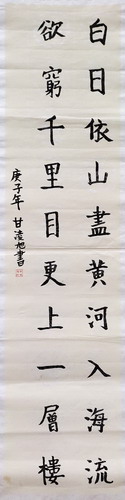 白日依山盡黃河入海流
欲窮千里目更上一層樓
庚子年 甘凌旭書